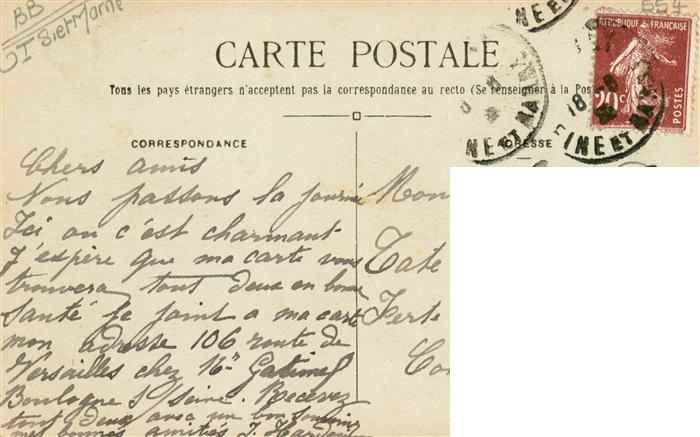 BB
S. et Marne
CARTE POSTALE
Tous les pays étrangers n'acceptent pas la correspondance au recto (Se renseigner à la Pos
RÉPUBLIQUE FRANÇAISE
20c
POSTES
18
INE ET MA
CORRESPONDANCE
Chers amis
Nous passons la journée
Ici ou c'est charmant
J'espère que ma carte vous
trouvera tout deux en bonne
santé je joint a ma carte
mon adresse 106 route de
Versailles chez Mr
Boulogne S/Seine. Recevez
tout deux avec un bon souvenir
mes bonnes amitiés J.
ADRESSE
Mon
Tate
Ferte
Co